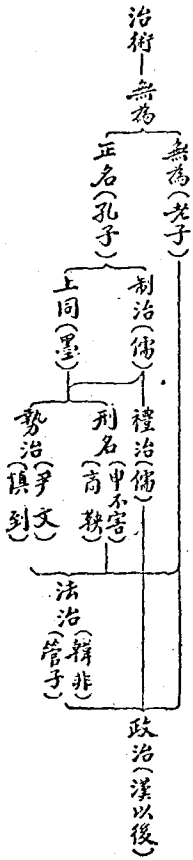 治術
無為
無為(老子)
正名(孔子)
制治(儒)
上同(墨)
禮治(儒)
刑名(申不害)(商鞅)
勢治(尹文)(慎到)
法治(韓非)(管子)
政治(漢以後)